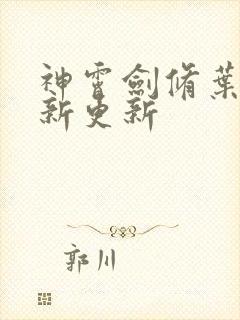 神霄劍脩葉
新更新
郭川